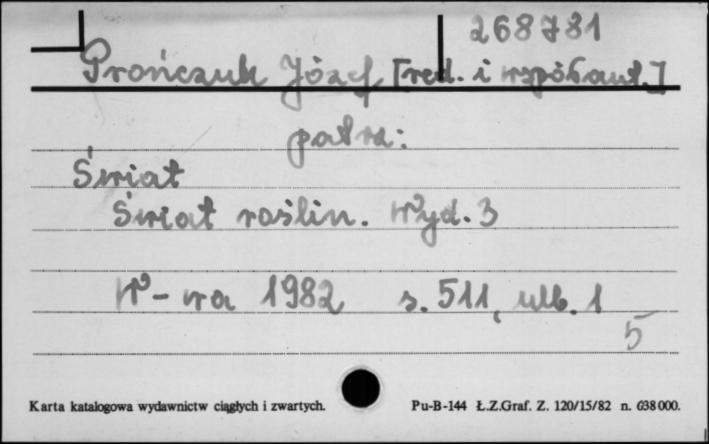 268781
Prończuk Józef [red. i współaut.]
patrz:
Świat
Świat roślin. Wyd. 3
W-wa 1982 s. 511, ulb. 1
5
Karta katalogowa wydawnictw ciągłych i zwartych. Pu-B-144 Ł.Z.Graf. Z. 120/15/82 n. 638 000.